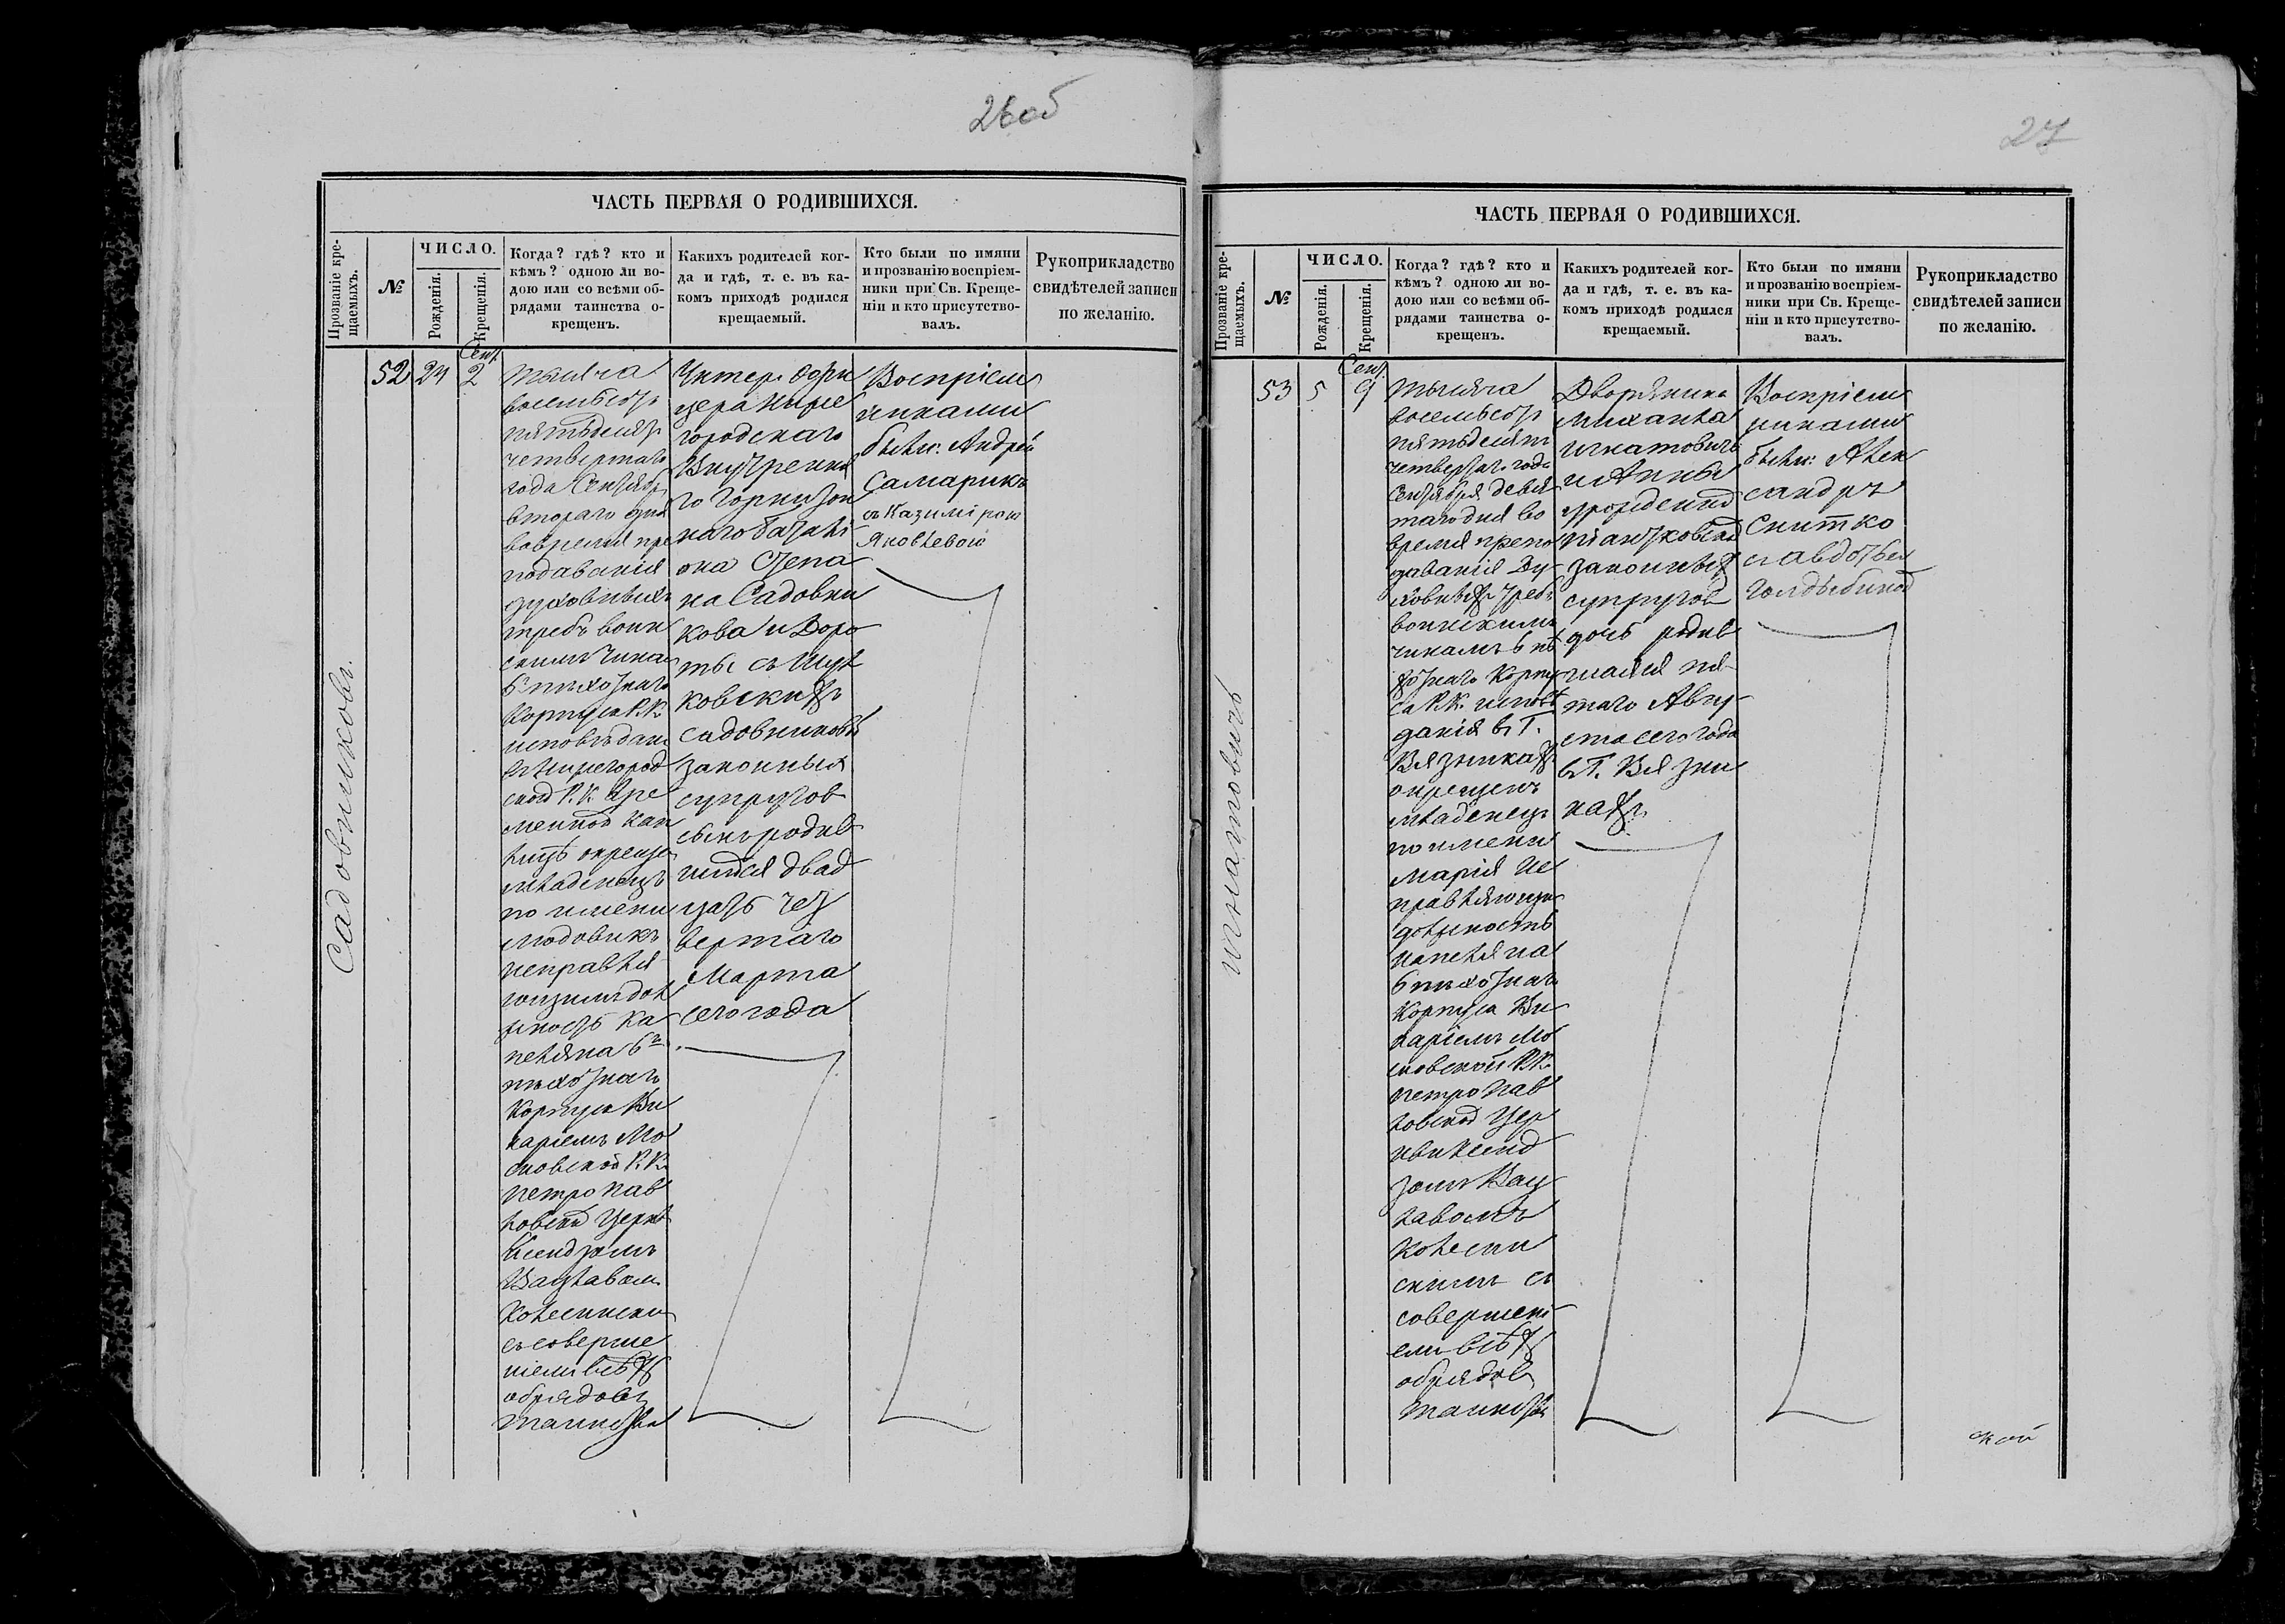 26об
ЧАСТЬ ПЕРВАЯ О РОДИВШИХСЯ.
Прозваніе кре-
щаемыхъ.
№
ЧИСЛО.
Рожденія.
Крещенія.
Когда? гдѣ? кто и
кѣмъ? одною ли во-
дою или со всѣми об-
рядами таинства о-
крещенъ.
Какихъ родителей ког-
да и гдѣ, т. е. въ ка-
комъ приходѣ родился
крещаемый.
Кто были по имяни
и прозванію воспріем-
ники при Св. Креще-
ніи и кто присутство-
валъ.
Рукоприкладство
свидѣтелей записи
по желанію.
Садовниковъ.
52
24
Сент.
2
тысяча
восемьсотъ
пятьдесятъ
четвертаго
года Сентябр
втораго дня
вовремя пре
подаванія
духовныхъ
требъ воин
скимъ чина
6 пѣхотнаго
Корпуса Р.К.
исповѣдан
въ Нижегород
ской Р.К. Вре
менной кап
лицѣ окреще
младенецъ
по имени
Людовикъ
исправля
ющимъ дол
жность ка
пеляна 6го
пѣхотнаго
Корпуса Ви
каріемъ Мо
сковской Р.К.
Петро Пав
ловской Церкв
Ксендзомъ
Вацлавом
Колесински
съ соверше
ніемъ всѣхъ
обрядовъ
таинства
Унтеръ Офи
цера Ниже
городскаго
Внутрення
го Горнизон
наго баталі
она Степа
на Садовни
кова и Доро
ты съ Шул
ковскихъ
Садовниковы
законныхъ
супруговъ
сынъ родив
шійся двад
цать чет
вертаго
Марта
сего года
Воспріем
никами
были: Андрей
Самарикъ
съ Казиміром
Яковлевою
27
ЧАСТЬ ПЕРВАЯ О РОДИВШИХСЯ.
Прозваніе кре-
щаемыхъ.
№
ЧИСЛО.
Рожденія.
Крещенія.
Когда? гдѣ? кто и
кѣмъ? одною ли во-
дою или со всѣми об-
рядами таинства о-
крещенъ.
Какихъ родителей ког-
да и гдѣ, т. е. въ ка-
комъ приходѣ родился
крещаемый.
Кто были по имяни
и прозванію воспріем-
ники при Св. Креще-
ніи и кто присутство-
валъ.
Рукоприкладство
свидѣтелей записи
по желанію.
Игнатовичъ
53
5
Сент.
9
тысяча
восемьсотъ
пятьдесятъ
четвертаго года
Сентября девя
таго дня во
время препо
даванія Ду
ховныхъ требъ
воинскимъ
чинамъ 6 пѣ
хотнаго Корпу
са Р.К. исповѣ
данія въ Г.
Вязникахъ
окрещенъ
младенецъ
по имени
Марія Ис
правляющи
должность
капеляна
6 пѣхотнаго
Корпуса Ви
каріемъ Мо
сковской Р.К.
Петро Пав
ловской Цер
кви Ксенд
зомъ Вац
лавомъ
Колесин
скимъ съ
совершені
емъ всѣхъ
обрядовъ
таинства
Дворянина
Михаила
Игнатовича
и Анны
урожденной
законныхъ
супруговъ
дочь родив
шаяся пя
таго Авгу
ста сего года
въ Г. Вязни
кахъ
Воспріем
никами
были: Алек
сандръ
Снитко
съ Авдотьею